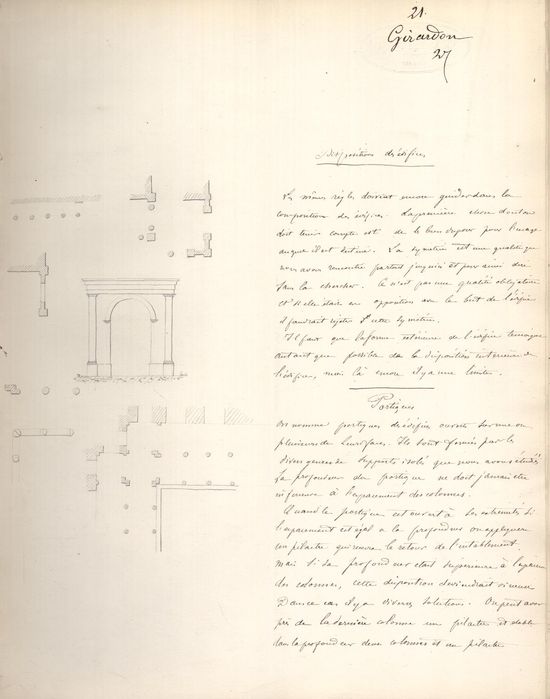 21.
Girardon
27
Dispositions d'édifices
Les mêmes règles doivent encore guider dans la
composition des édifices. La première chose dont on
doit tenir compte est de le bien disposer pour l'usage
auquel il est destiné. La symétrie est une qualité que
nous avons rencontré partout jusqu'ici et pour ainsi dire
sans la chercher. Ce n'est pas une qualité obligatoire
et si elle était en opposition avec le but de l'édifice
il faudrait rejeter cette symétrie.
Il faut que la forme extérieure de l'édifice témoigne
autant que possible de la disposition intérieure de
l'édifice, mais là encore il y a une limite.
Portiques
On nomme portiques des édifices ouverts sur une ou
plusieurs de leurs faces. Ils sont formés par les
divers genres de supports isolés que nous avons étudiés
La profondeur du portique ne doit jamais être
inférieure à l'espacement des colonnes.
Quand le portique est ouvert à ses extrémités si
l'espacement est égal à la profondeur on appliquera
un pilastre qui recevra le retour de l'entablement.
Mais si sa profondeur était supérieure à l'espacement
des colonnes, cette disposition deviendrait vicieuse
Dans ce cas il y a diverses solutions. On peut avoir
près de la dernière colonne un pilastre et établir
dans la profondeur deux colonnes et un pilastre